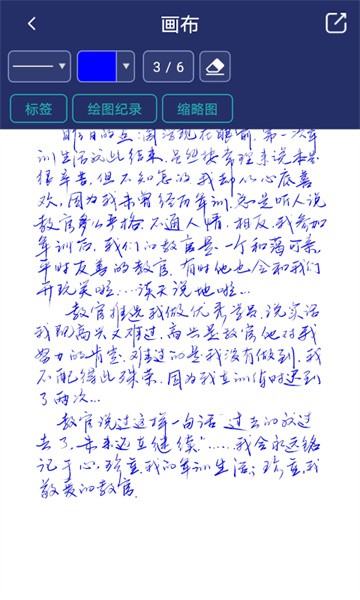 画布
3 / 6
标签 绘图纪录 缩略图
训生活就此结束。虽然按常理来说本当
很辛苦,但不知怎的,我却从心底喜
欢,因为我未曾经历军训,总是听人说
教官多么严格,不通人情,相反,我参加
军训后,我们的教官是一个和蔼可亲,
平时友善的教官。有时他也会和我们
开玩笑啦……谈天说地啦…
教官推选我做优秀学员,说实话
我既高兴又难过,高兴是教官他对我
努力的肯定,难过的是我没有做到,我
不配得此殊荣,因为我在训练时迟到
了两次…
教官说过这样一句话“过去的放过
去了,未来还在继续”……我会永远铭
记于心,珍重,我的军训生活;珍重,我
敬爱的教官.